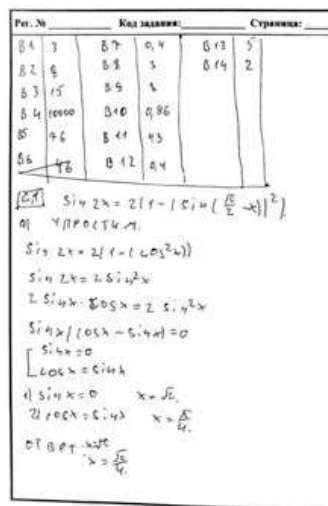 Рег. № Код задания: Страница:
В1 3 В7 0,4 В13 5
В2 8 В8 3 В14 2
В3 15 В9 8
В4 10000 В10 0,86
В5 76 В11 43
В6 46 В12 0,4
C1 Sin 2x = 2(1-(Sin(π/2 -x))²)
а) упростим.
Sin 2x = 2(1-(cos²x))
Sin 2x = 2 Sin²x
2 Sinx · cosx = 2 Sin²x
Sinx(cosx - sinx) = 0
[ Sinx = 0
cosx = sinx
1) Sinx = 0 x = π.
2) cosx = sinx x = π/4.
ответ
x = π/4.